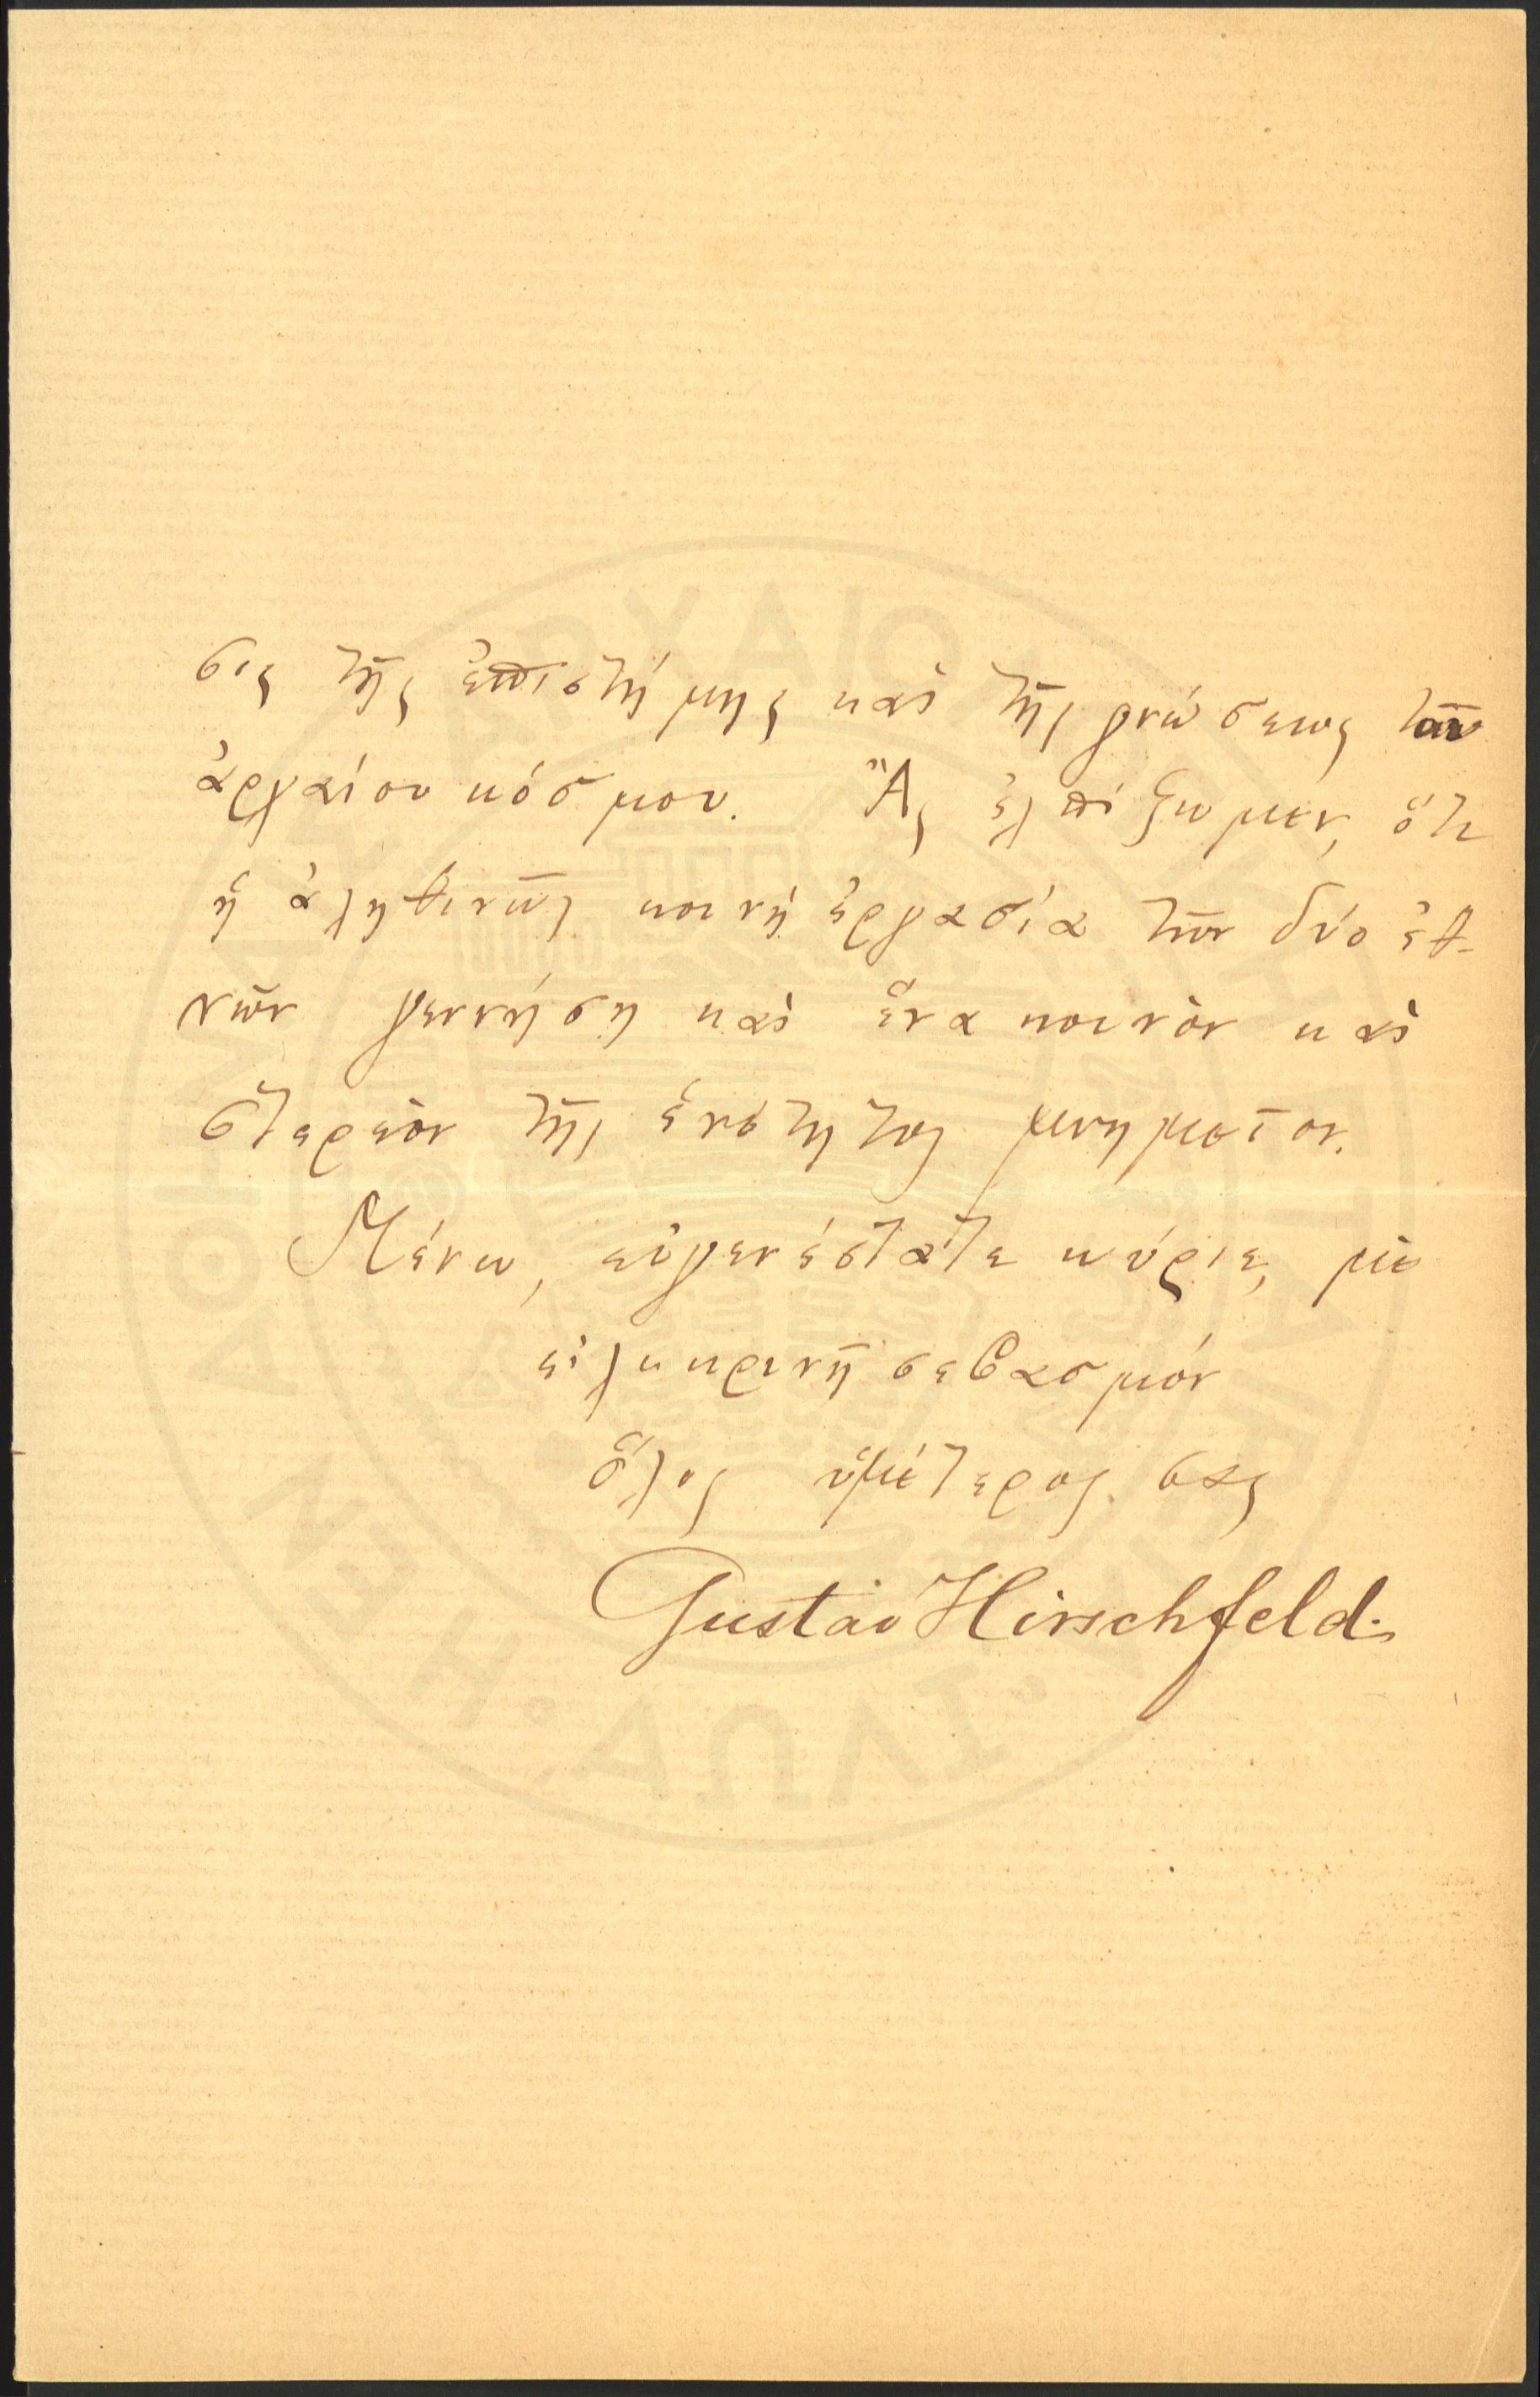 σις τῆς ἐπιστήμης καὶ τῆς γνώσεως τοῦ
ἀρχαίου κόσμου. Ἂς ἐλπίζωμεν, ὅτι
ἡ ἀληθινῶς κοινὴ ἐργασία τῶν δύο ἐθ-
νῶν γεννήσῃ καὶ ἕνα κοινὸν καὶ
στερεὸν τῆς ἑνότητος μνημεῖον.
Μένω, εὐγενέστατε κύριε, μὲ
εἰλικρινῆ σεβασμόν
ὅλος ὑμέτερος σας
Gustav Hirschfeld.